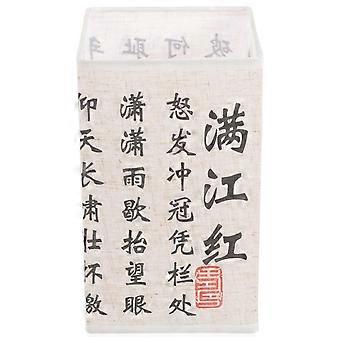 满江红
怒发冲冠凭栏处
潇潇雨歇抬望眼
仰天长肃壮怀激
破何耻年